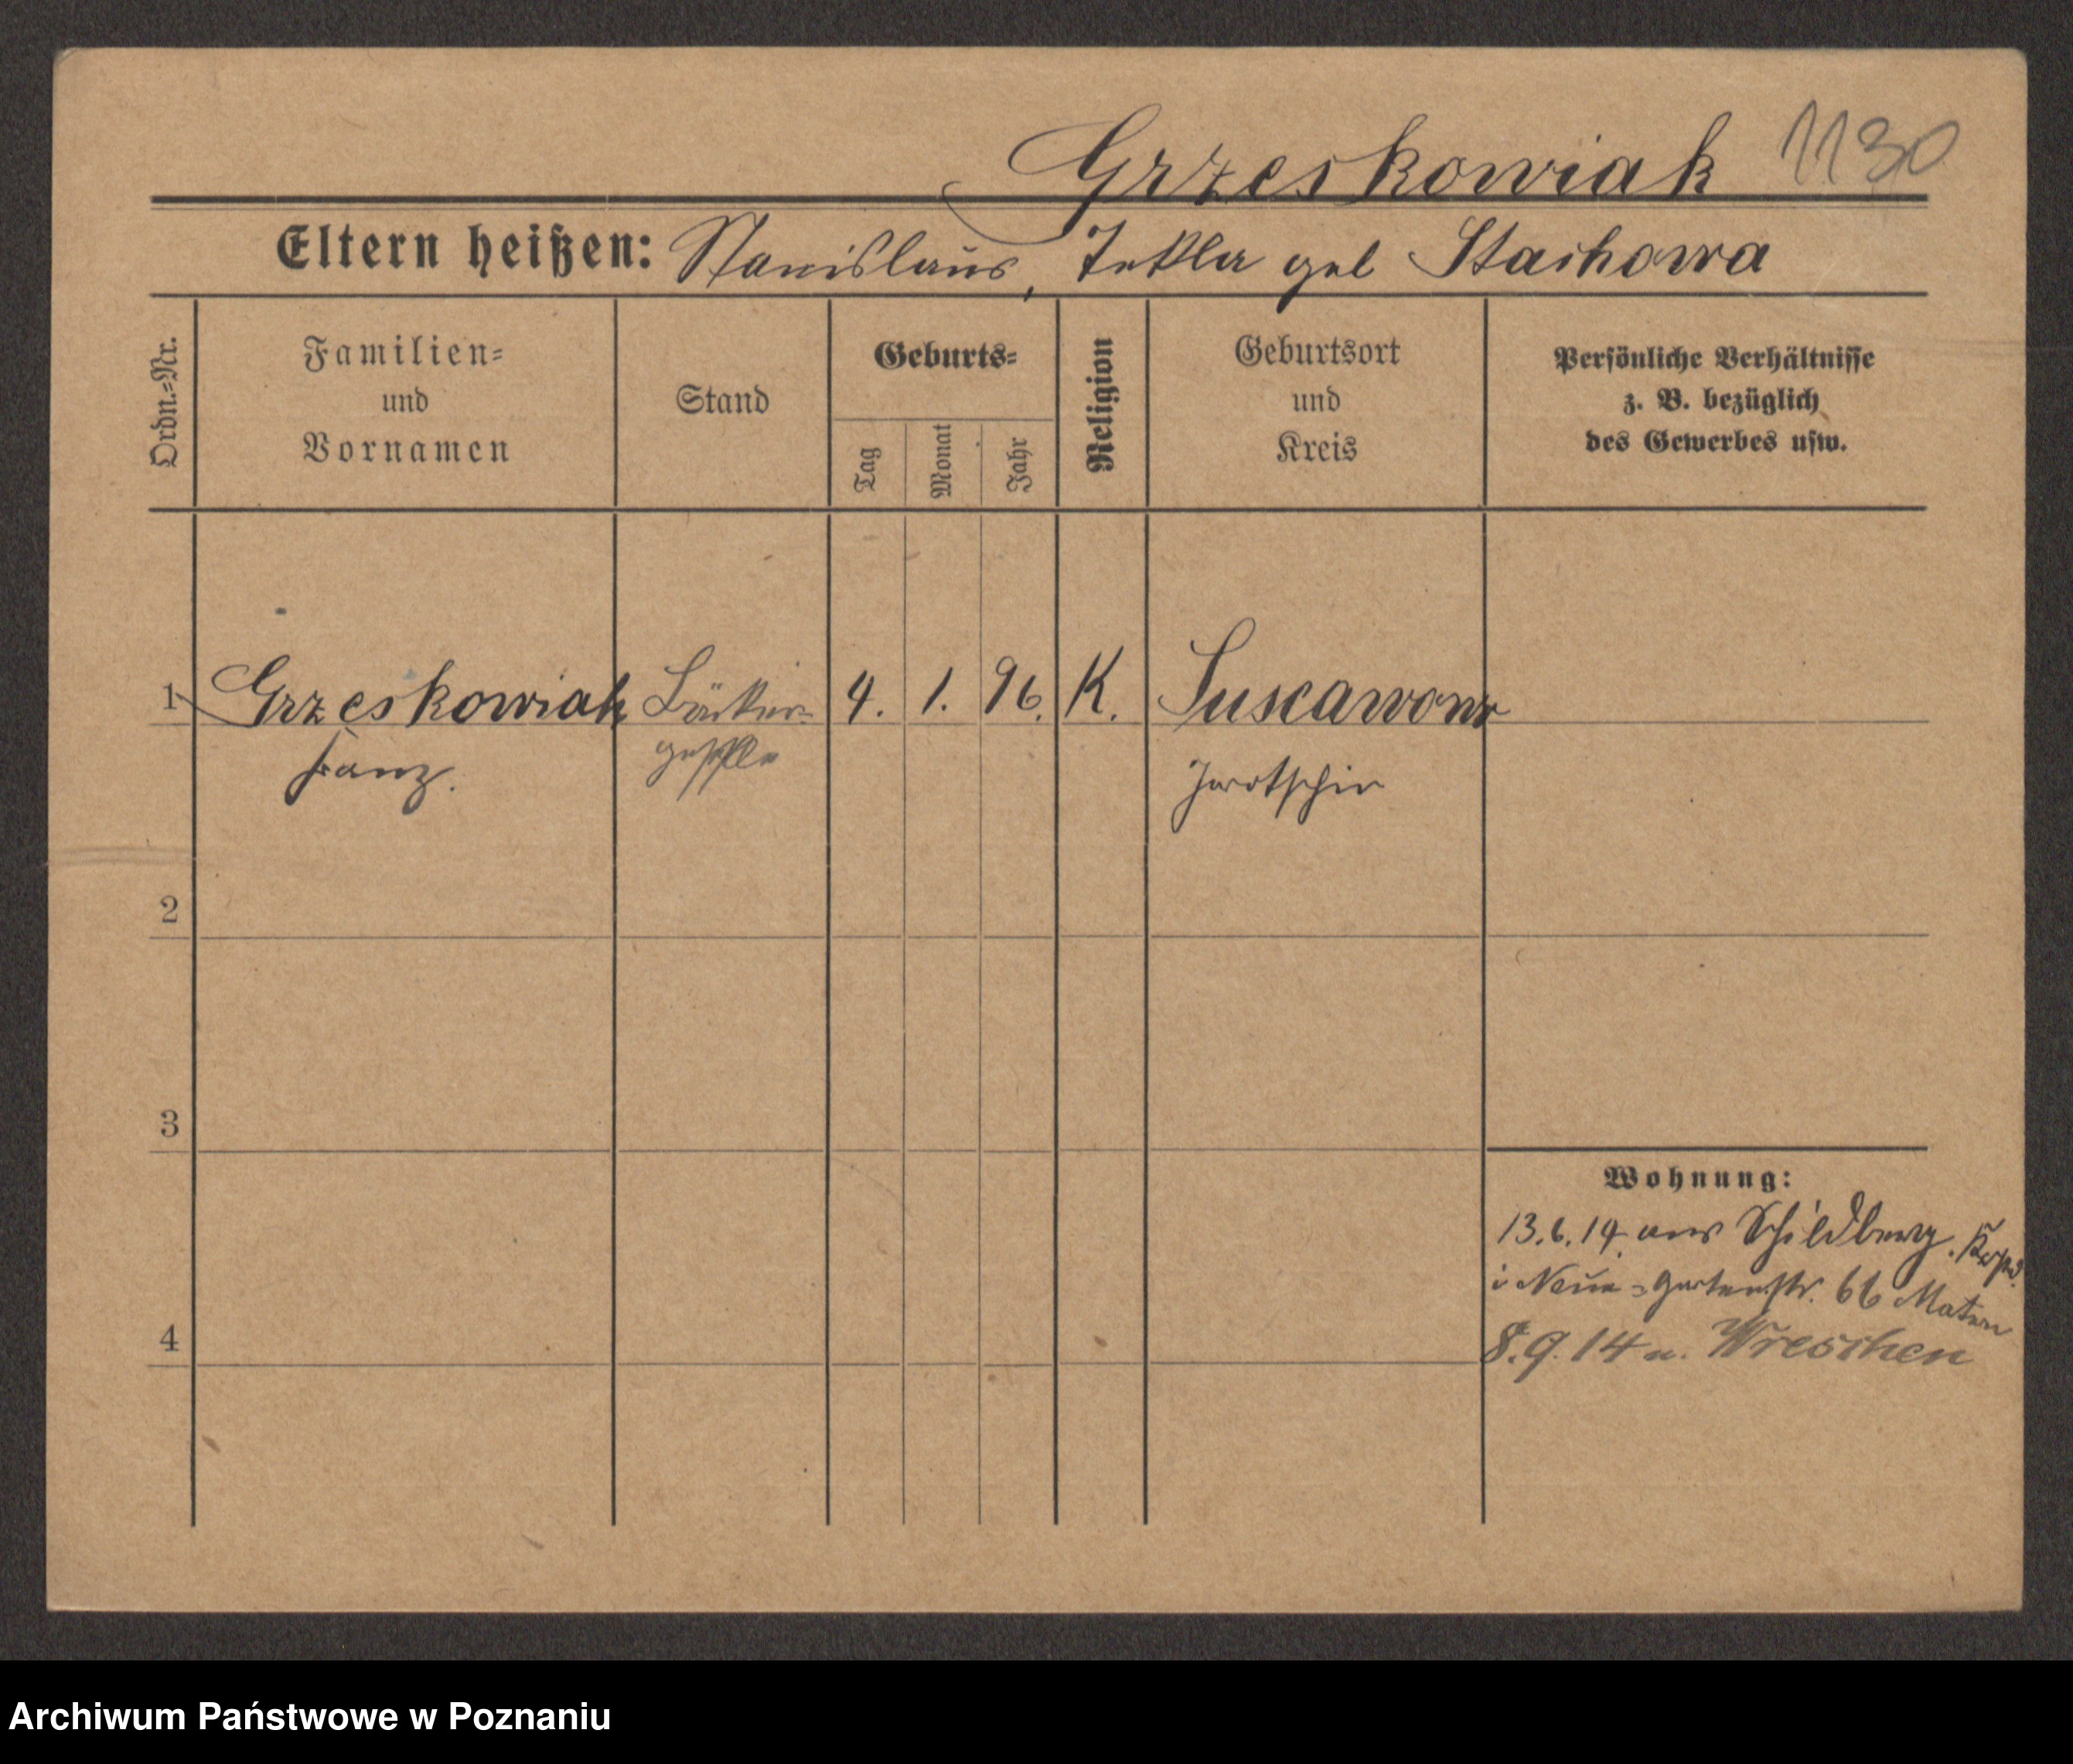 Grzeskowiak 1130
Eltern heißen: Stanislaus, Tekla geb Stachowa
Ordn.=Nr.
Familien=
und
Vornamen
Stand
Geburts=
Tag
Monat
Jahr
Religion
Geburtsort
und
Kreis
Persönliche Verhältnisse
z. B. bezüglich
des Gewerbes usw.
1 Grzeskowiak Bäcker= 4. 1. 96. K.
Franz. geselle Jarotschin
2
3
4
Wohnung:
13.6.14. aus Schildberg.
Neue=Gartenstr. 66
8.9.14 n. Wreschen
Archiwum Państwowe w Poznaniu